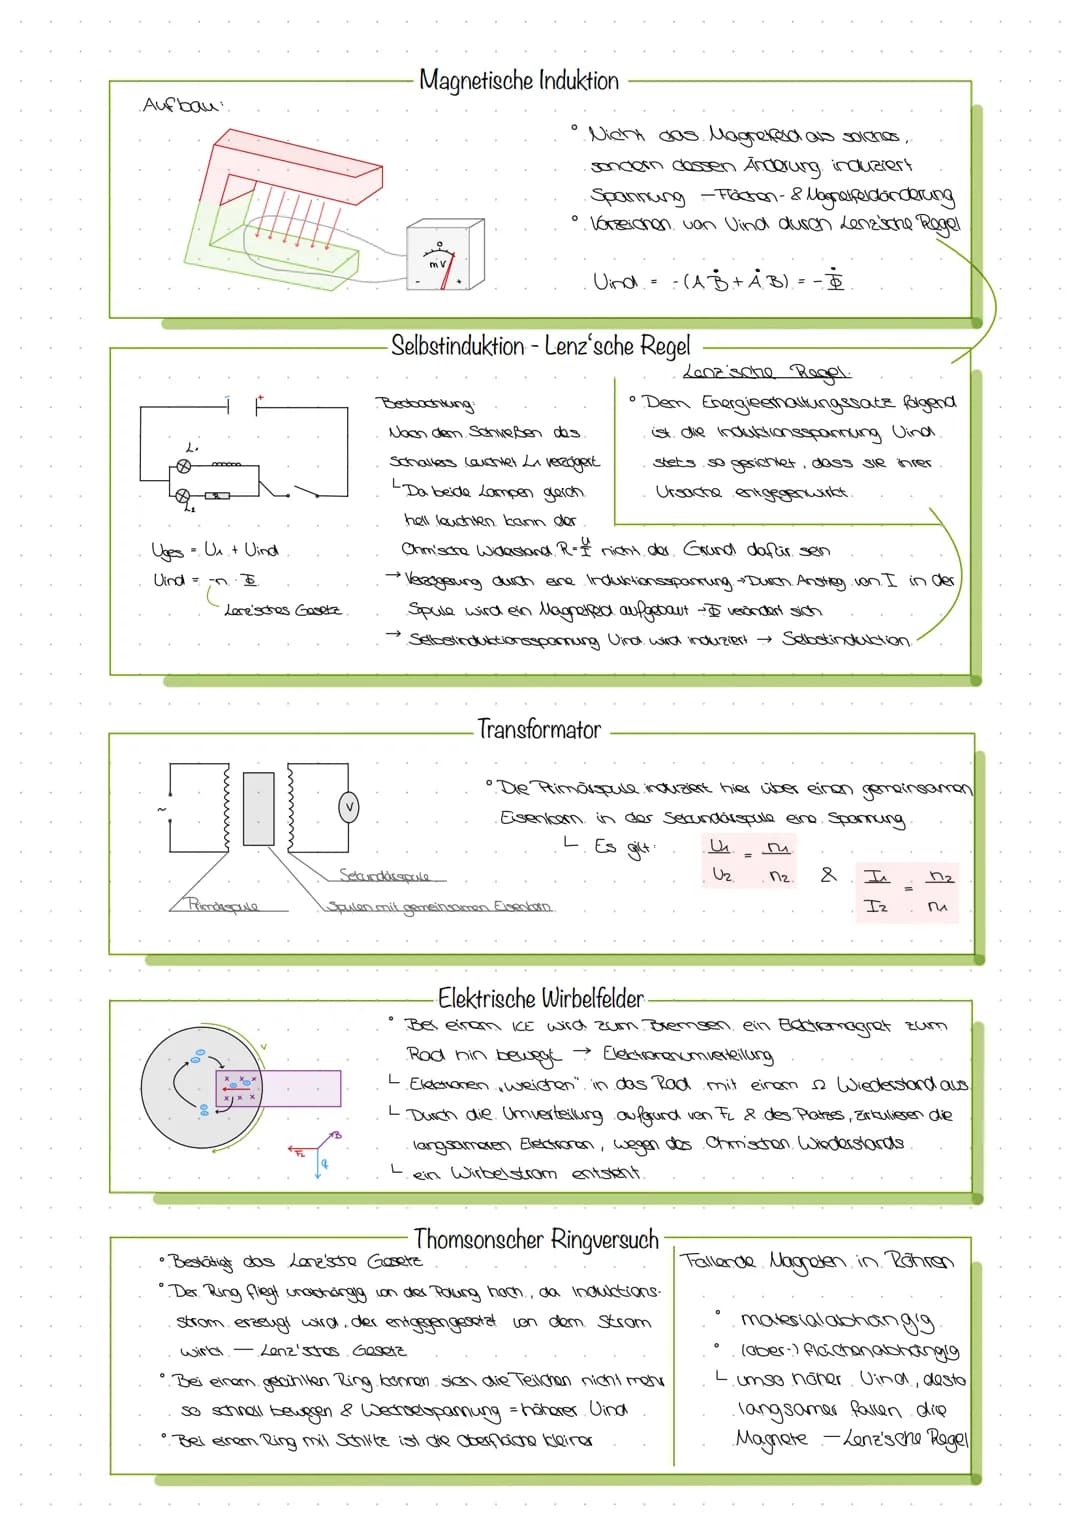 Magnetische Induktion
Aufbau:
° Nicht das Magnetfeld als solches,
sondern dessen Änderung induziert
Spannung – Flächen- & Magnetfeldänderung
° Vorzeichen von Uind durch Lenz'sche Regel
Uind = -(A Ḃ + Ȧ B) = - Φ̇
0
mV
- +
Selbstinduktion - Lenz'sche Regel
- +
L1
L2
Uges = U1 + Uind
Uind = -n · Φ̇
Lenz'sches Gesetz
Lenz'sche Regel:
° Dem Energieerhaltungssatz folgend
ist die Induktionsspannung Uind
stets so gerichtet, dass sie ihrer
Ursache entgegenwirkt.
Beobachtung:
Nach dem Schließen des
Schalters leuchtet L1 verzögert
Da beide Lampen gleich
hell leuchten kann der
Ohm'sche Widerstand R=U/I nicht der Grund dafür sein
→ Verzögerung durch eine Induktionsspannung → Durch Anstieg von I in der
Spule wird ein Magnetfeld aufgebaut → Φ verändert sich
→ Selbstinduktionsspannung Uind wird induziert → Selbstinduktion
Transformator
~
V
Sekundärspule
Primärspule
Spulen mit gemeinsamen Eisenkern
° Die Primärspule induziert hier über einen gemeinsamen
Eisenkern in der Sekundärspule eine Spannung
Es gilt: U1/U2 = n1/n2 & I1/I2 = n2/n1
Elektrische Wirbelfelder
v
x x x
x x x
B
FL
q
° Bei einem ICE wird zum Bremsen ein Elektromagnet zum
Rad hin bewegt → Elektronenumverteilung
Elektronen „weichen" in das Rad mit einem Ω Wiederstand aus
Durch die Umverteilung aufgrund von FL & des Platzes, zirkulieren die
langsameren Elektronen, wegen des Ohm'schen Wiederstands
ein Wirbelstrom entsteht
Thomsonscher Ringversuch
° Bestätigt das Lenz'sche Gesetz
° Der Ring fliegt unabhängig von der Polung hoch, da Induktions-
strom erzeugt wird, der entgegengesetzt von dem Strom
wirkt – Lenz'sches Gesetz
° Bei einem gekühlten Ring können sich die Teilchen nicht mehr
so schnell bewegen & Wechselspannung = höherer Uind
° Bei einem Ring mit Schlitz ist die Oberfläche kleiner
Fallende Magneten in Röhren
° materialabhängig
° (ober-) flächenabhängig
umso höher Uind, desto
langsamer fallen die
Magnete – Lenz'sche Regel